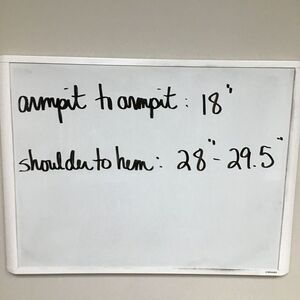 armpit to armpit: 18"
shoulder to hem: 28" - 29.5"